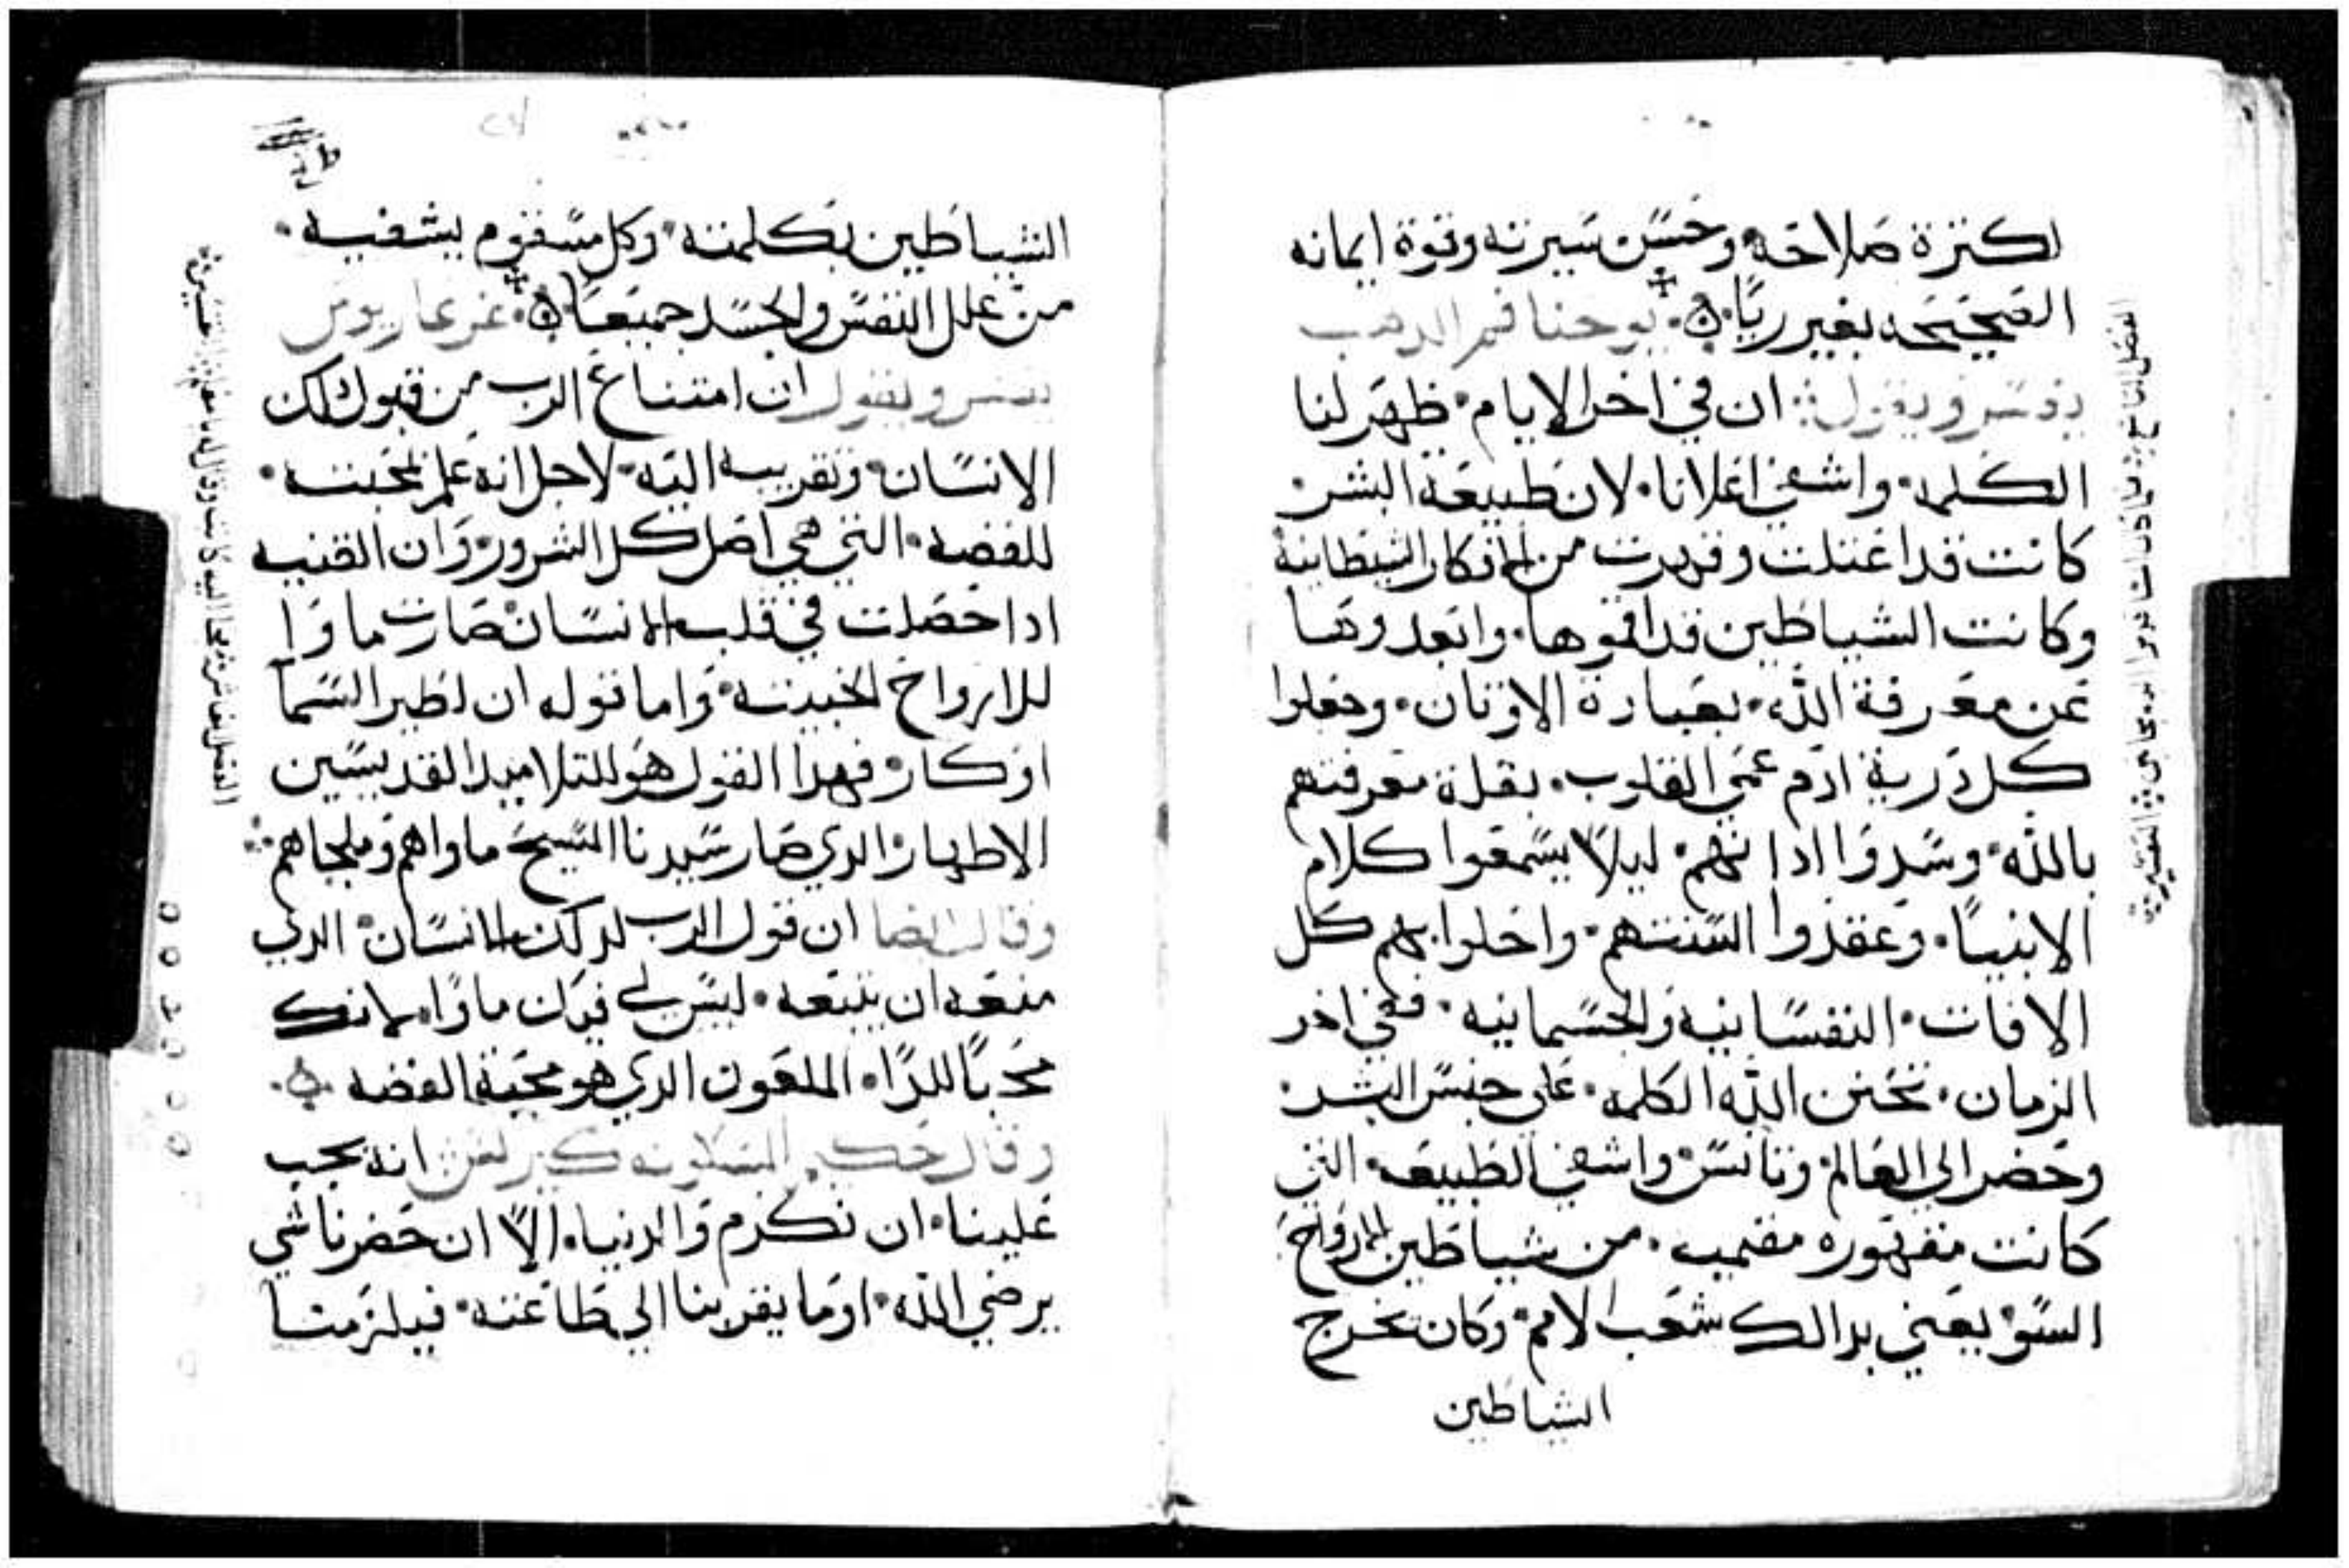 لكترة صلاحه وحسن سيرته وقوة ايمانه
الصحيحه بغير ريا يوحنا فم الدهب
يفسر ويقول ان في اخر الايام ظهر لنا
الكلمه واشفي اعلانا لان طبيعة البشر
كانت قد اعتلت وقهرت من الافكار الشيطانية
وكانت الشياطين قد اقموها وابعدوها
عن معرفة الله بعبادة الاوتان وجعلوا
كل درية ادم عمي القلوب بقلة معرفتهم
بالله وسدوا ادانهم ليلا يسمعوا كلام
الانبيا وعقدوا السنتهم واحلوا بهم كل
الافات النفسانيه والجسمانيه ففي اخر
الزمان تحنن الله الكلمه علي جنس البشر
وحضر الي العالم وتانس واشفي الطبيعه التي
كانت مقهوره من شياطين الارواح
السو يعني بدالك شعب الامم وكان يخرج
الشياطين
الشياطين بكلمته وكل مسقوم يشفيه
من علل النفس والجسد جميعا
يفسر ويقول ان امتناع الرب من قبول دلك
الانسان وتقريبه اليه لاجل انه علم بمحبته
للفضه التي هي اصل كل الشرور وان القنيه
ادا حصلت في قلب الانسان صارت ماوا
للارواح الخبيته واما قوله ان لطير السما
اوكار فهدا القول هو للتلاميد القديسين
الاطهار الدي صار سيدنا المسيح ماواهم وملجاهم
وقال ايضا ان قول الرب لدلك الانسان الدي
منعه ان يتبعه ليس لي فيك ماوا لانك
محبا للدا الملعون الدي هو محبة الفضه
وقال انه يجب
علينا ان نكرم والدنيا الا ان حضرنا شي
يرضي الله او ما يقربنا الي طاعته فيلزمنا